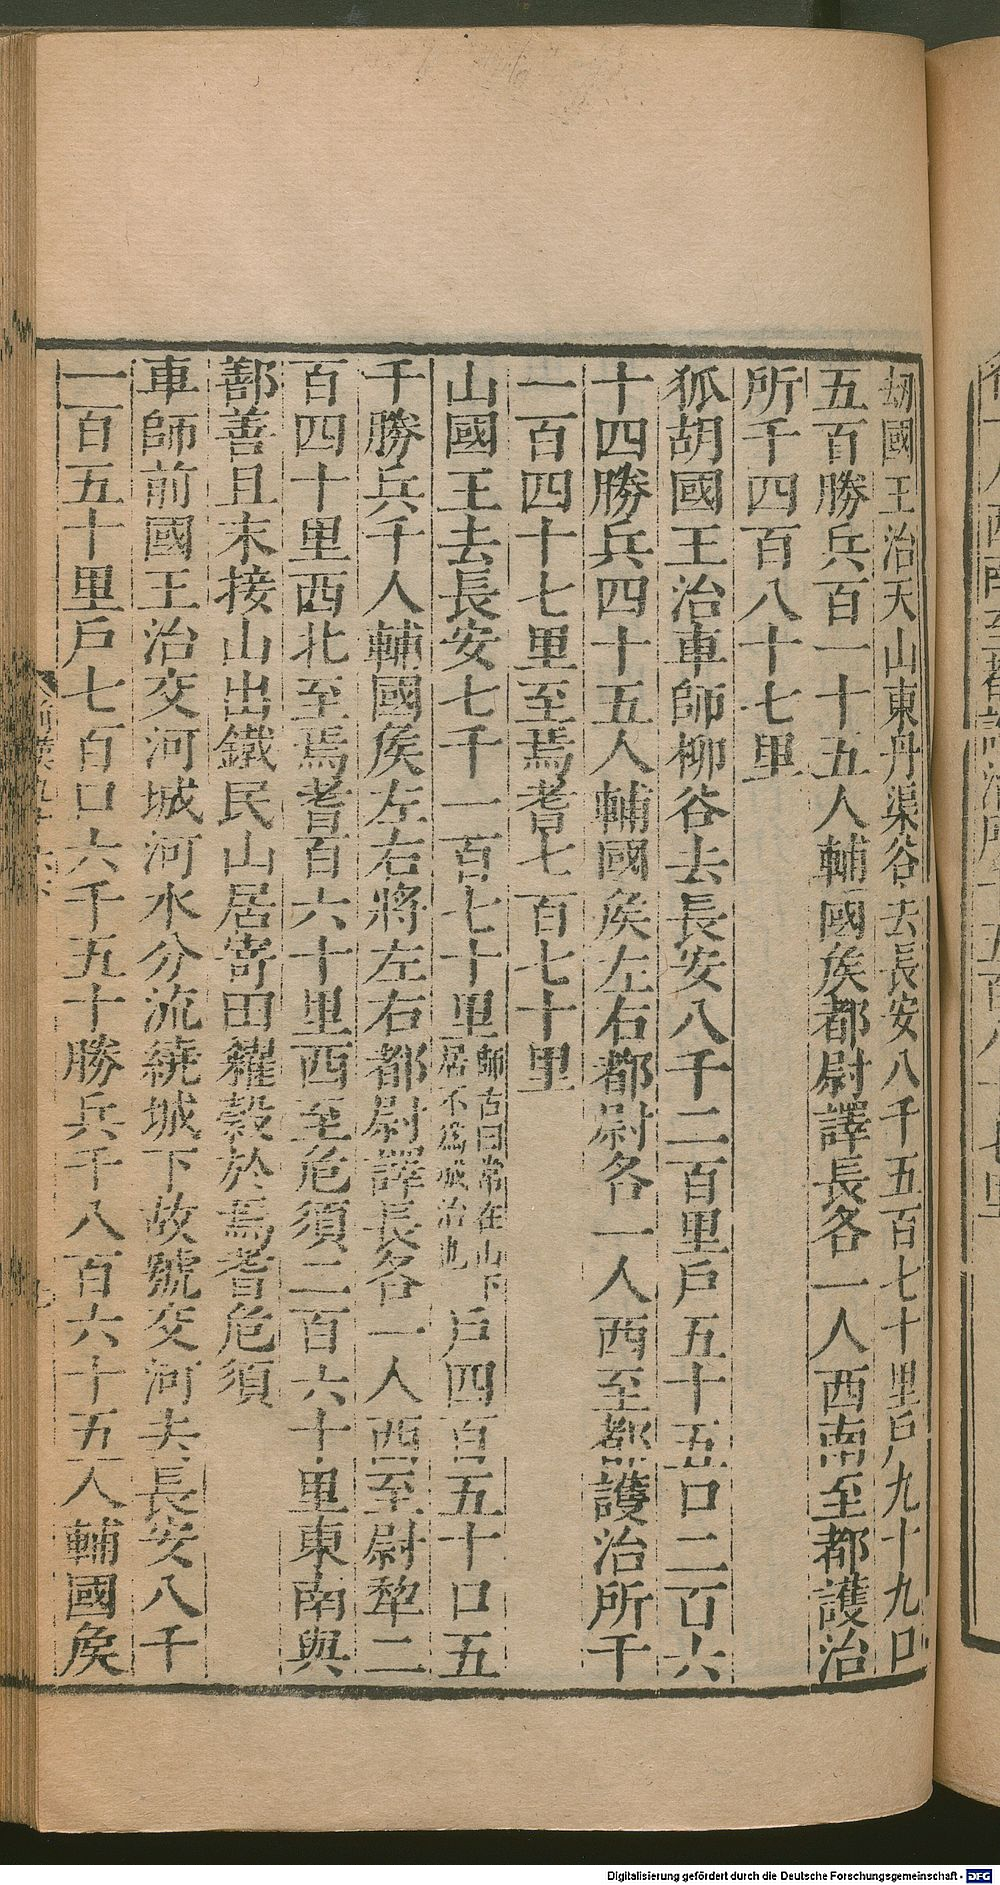 劫國王治天山東丹渠谷去長安八千五百七十里戶九十九口
五百勝兵百一十五人輔國矦都尉譯長各一人西南至都護治
所千四百八十七里
狐胡國王治車師柳谷去長安八千二百里戶五十五口二百六
十四勝兵四十五人輔國矦左右都尉各一人西至都護治所千
一百四十七里至焉耆七百七十里
山國王去長安七千一百七十里師古曰常在山下居不爲城治也戶四百五十口五
千勝兵千人輔國矦左右將左右都尉譯長各一人西至尉犂二
百四十里西北至焉耆百六十里西至危須二百六十里東南與
鄯善且末接山出鐵民山居寄田糴穀於焉耆危須
車師前國王治交河城河水分流繞城下故號交河去長安八千
一百五十里戶七百口六千五十勝兵千八百六十五人輔國矦
Digitalisierung gefördert durch die Deutsche Forschungsgemeinschaft - DFG